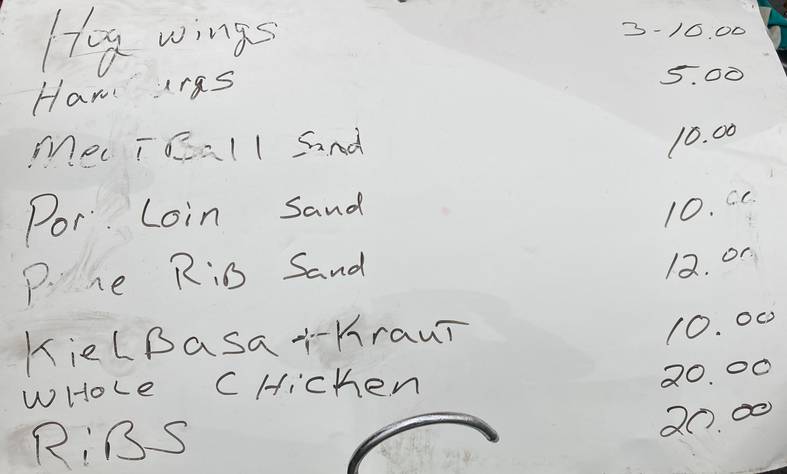 Hog wings 3-10.00
Hamburgs 5.00
MeatBall Sand 10.00
Pork Loin Sand 10.00
Prime RiB Sand 12.00
KielBasa + KrauT 10.00
WHole CHicken 20.00
RiBS 20.00